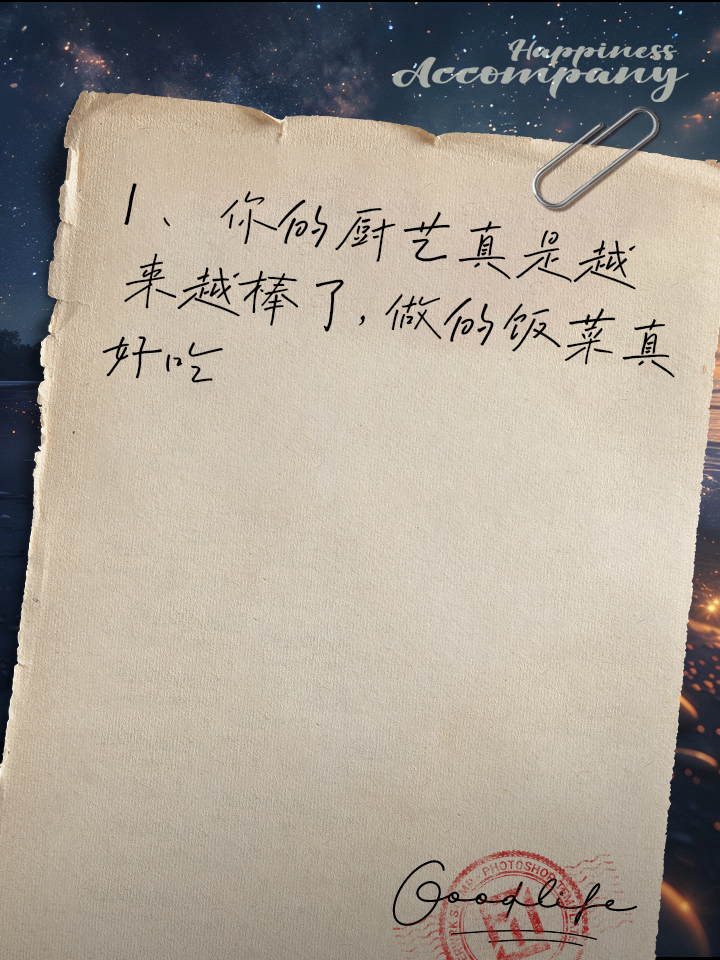 Happiness
Accompany
1、你的厨艺真是越
来越棒了,做的饭菜真
好吃
Goodlife